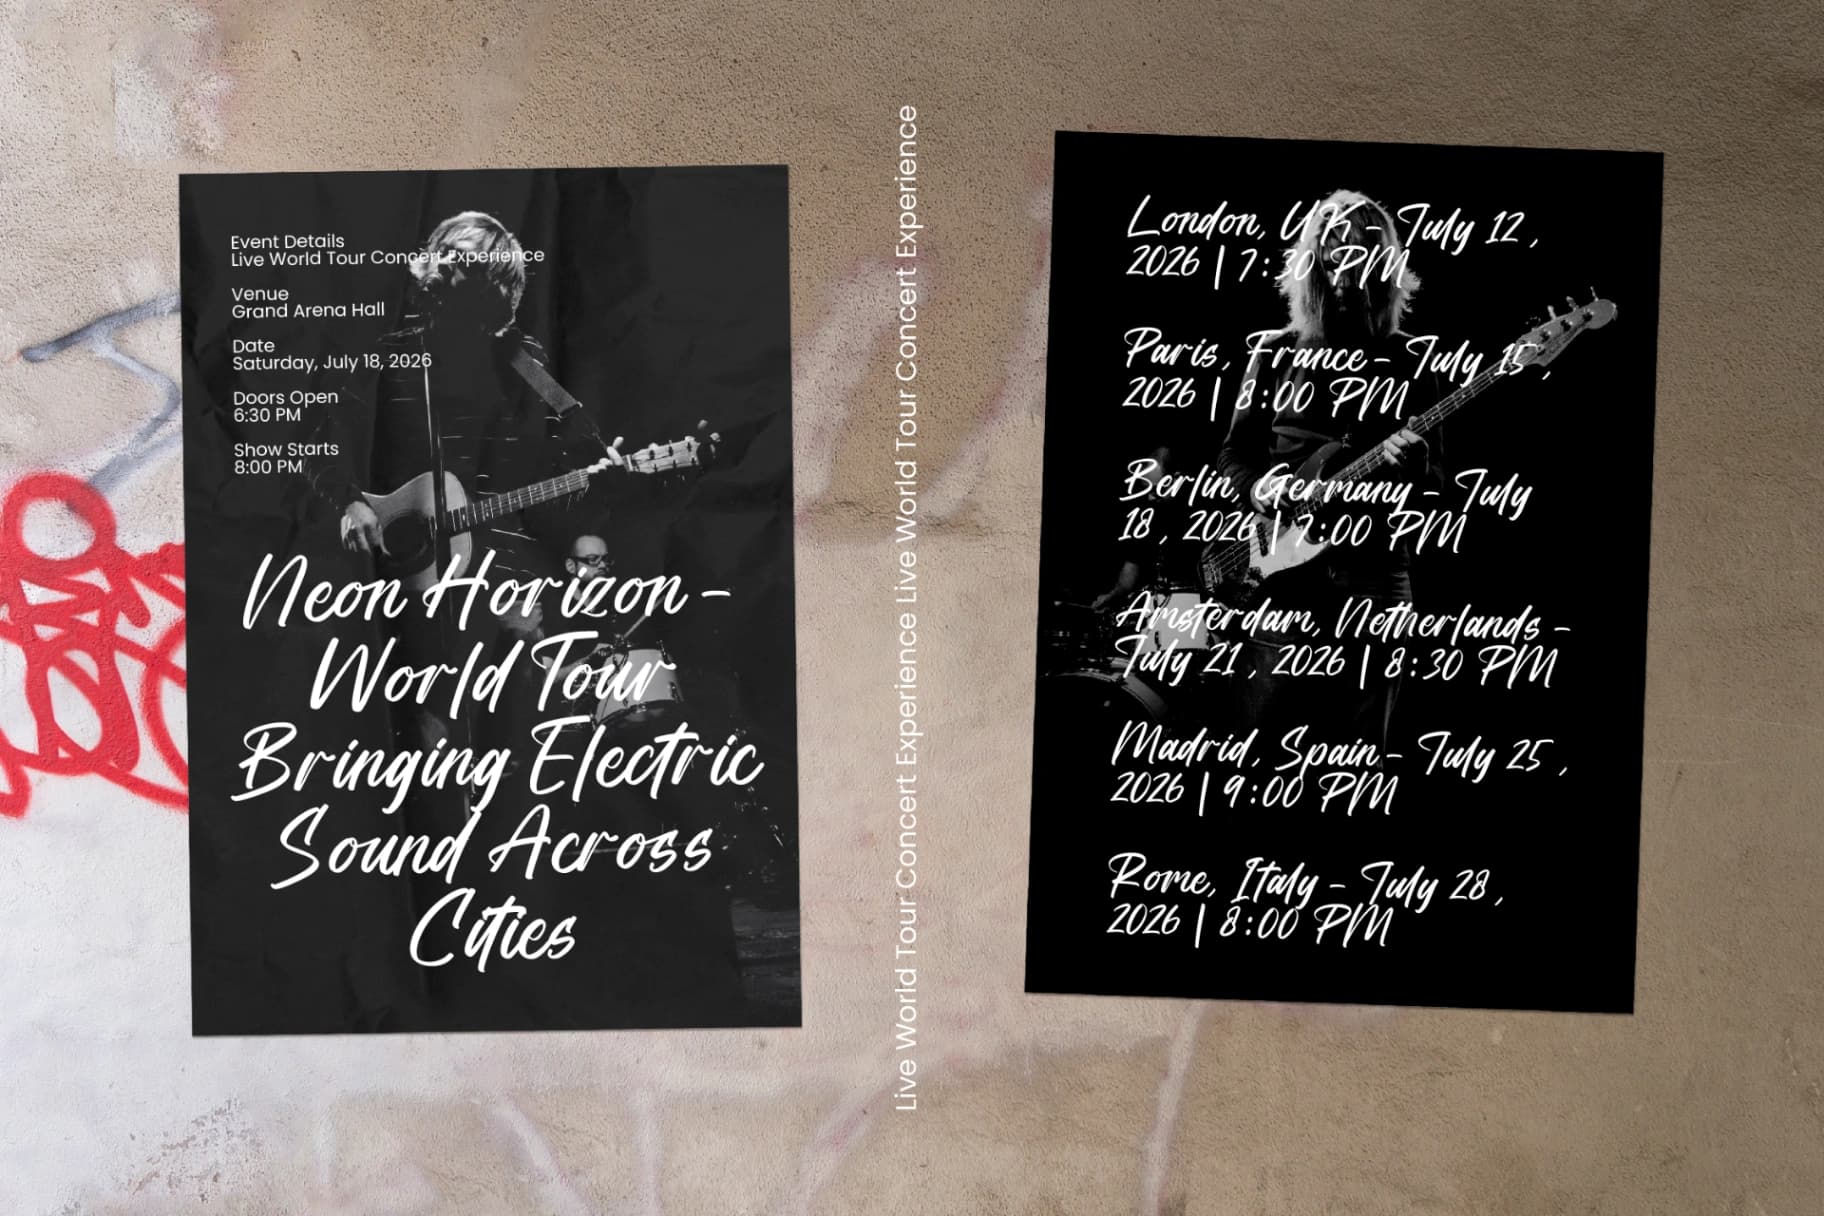 Event Details
Live World Tour Concert Experience
Venue
Grand Arena Hall
Date
Saturday, July 18, 2026
Doors Open
6:30 PM
Show Starts
8:00 PM
Neon Horizon -
World Tour
Bringing Electric
Sound Across
Cities
Live World Tour Concert Experience Live World Tour Concert Experience
London, UK - July 12 ,
2026 | 7:30 PM
Paris, France - July 15 ,
2026 | 8:00 PM
Berlin, Germany - July
18 , 2026 | 7:00 PM
Amsterdam, Netherlands -
July 21 , 2026 | 8:30 PM
Madrid, Spain - July 25 ,
2026 | 9:00 PM
Rome, Italy - July 28 ,
2026 | 8:00 PM